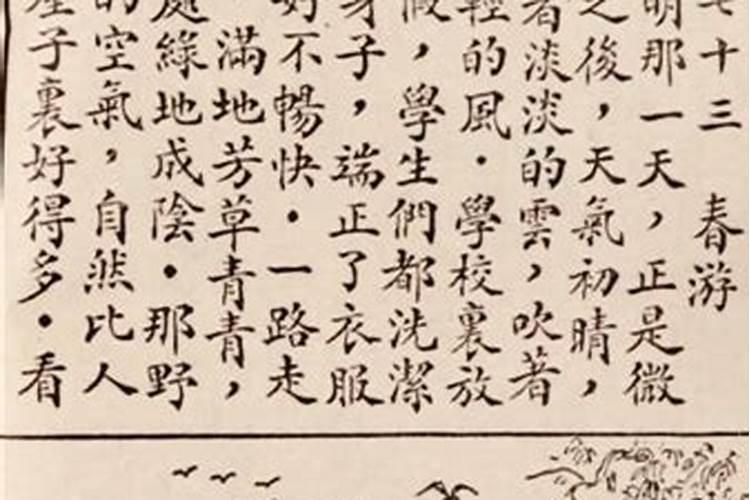 十三　春游
明那一天，正是微
之後，天氣初晴，
着淡淡的雲，吹著
輕的風．學校裏放
假，學生們都洗潔
身子，端正了衣服
好不暢快．一路走
滿地芳草青青，
處綠地成陰．那野
的空氣，自然比人
子裏好得多．看